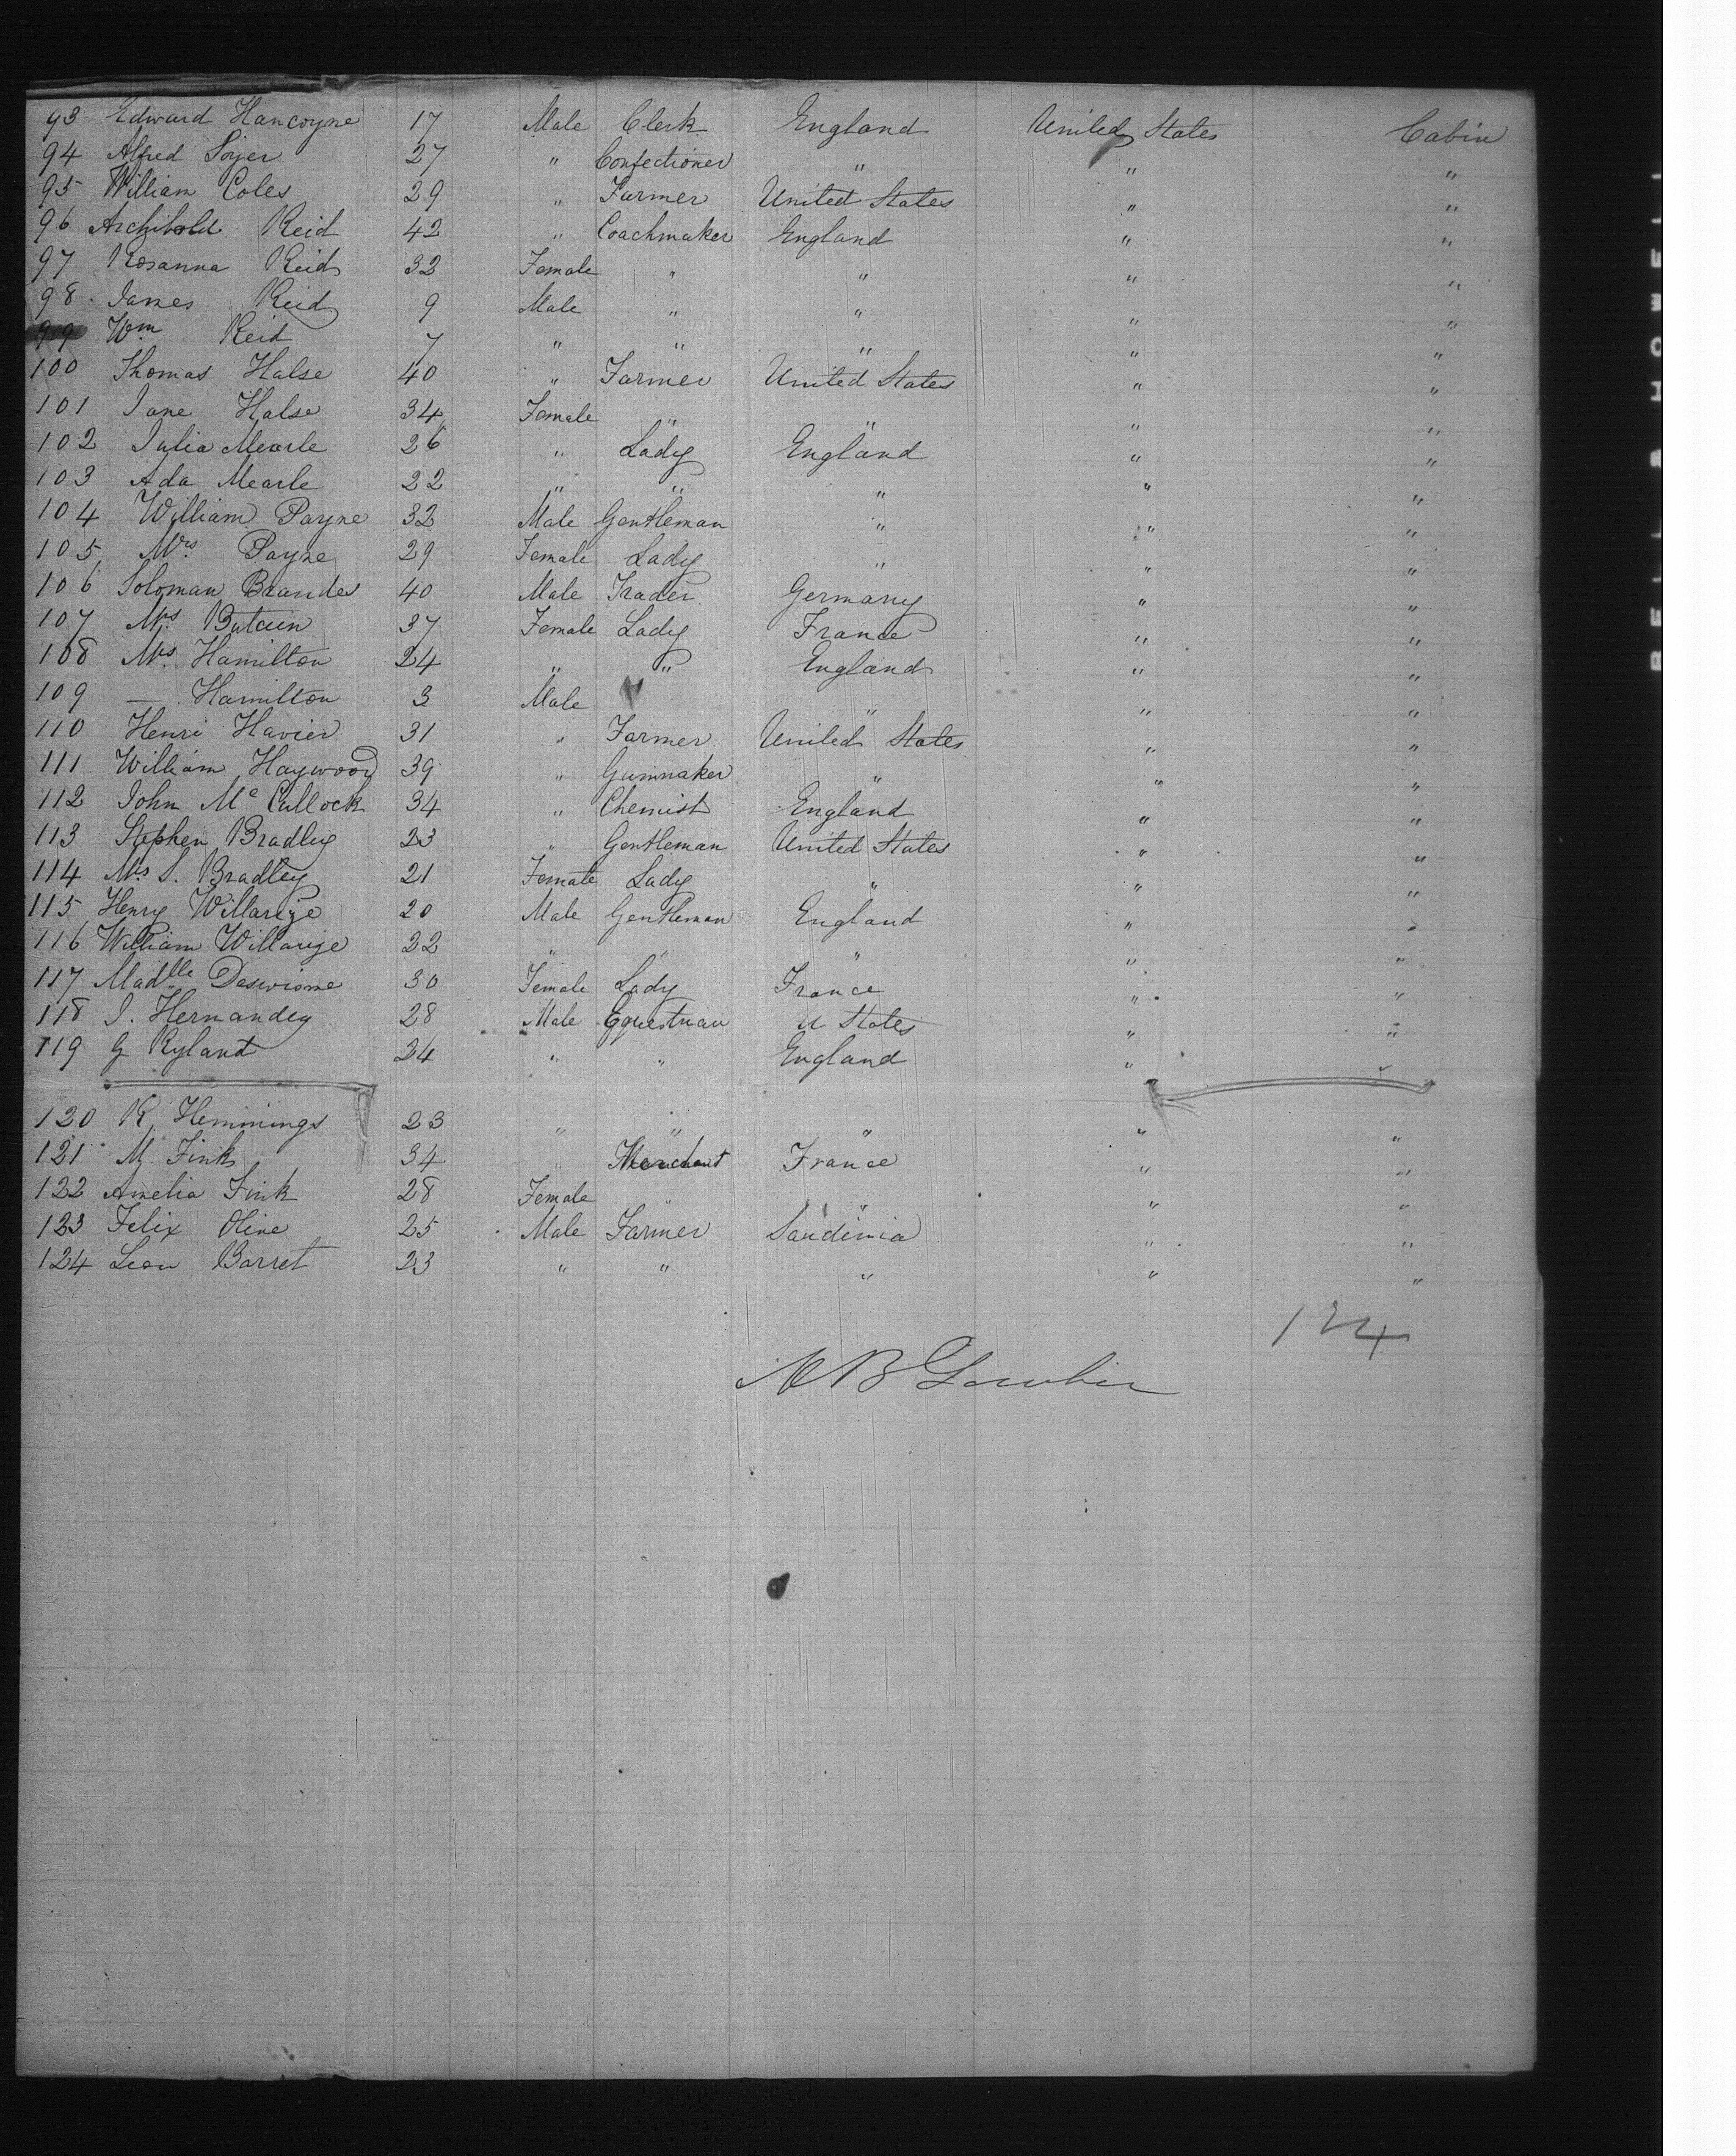 93 Edward Hancoyne 17 Male Clerk England United States Cabin
94 Alfred Sojer 27 " Confectioner " " "
95 William Coles 29 " Farmer United States " "
96 Archibold Reid 42 " Coachmaker England " "
97 Rosanna Reid 32 Female " " " "
98 James Reid 9 Male " " " "
99 Wm Reid 7 " " " " "
100 Thomas Halse 40 " Farmer United States " "
101 Jane Halse 34 Female " " " "
102 Julia Mearle 26 " Lady England " "
103 Ada Mearle 22 " " " " "
104 William Payne 32 Male Gentleman " " "
105 Mrs Payne 29 Female Lady " " "
106 Soloman Brandes 40 Male Trader Germany " "
107 Mrs 37 Female Lady France " "
108 Mrs Hamilton 24 " " England " "
109 — Hamilton 3 Male " " "
110 Henri Havier 31 " Farmer United States " "
111 William Haywood 39 " Gunmaker " " "
112 John Mc Cullock 34 " Chemist England " "
113 Stephen Bradley 23 " Gentleman United States " "
114 Mrs S. Bradley 21 Female Lady " " "
115 Henry Willarije 20 Male Gentleman England " "
116 William Willarije 22 " " " "
117 Madlle 30 Female Lady France " "
118 J. Hernandey 28 Male Equestrian U States " "
119 G Ryland 24 " " England " "
120 R. Hemmings 23 " " " " "
121 M. Fink 34 " Merchant France " "
122 Amelia Fink 28 Female " " " "
123 Felix Olive 25 Male Farmer Sardinia " "
124 Leon Barret 23 " " " " "
124